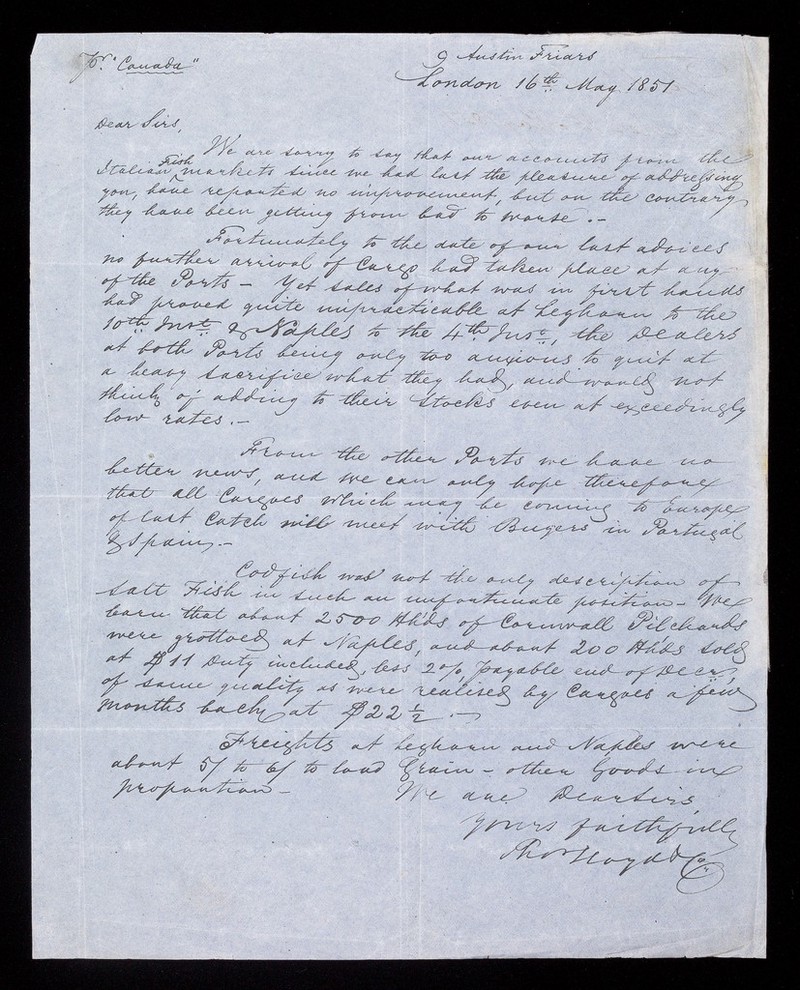 Pr. "Canada"
9 Austin Friars
London 16th May 1851
Dear Sirs,
We are sorry to say that our accounts from the
Italian Fish markets since we had last the pleasure of addressing
you, have reported no improvement, but on the contrary
they have been getting from bad to worse.-
Fortunately to the date of our last advices
no further arrival of Cargo had taken place at any
of the Ports - Yet sales of what was in first hands
had proved quite impracticable at Leghorn to the
10th Inst & Naples to the 4th Inst, the Dealers
at both Ports being only too anxious to quit at
a heavy sacrifice what they had, and would not
think of adding to their Stocks even at exceedingly
low rates.-
From the other Ports we have no
better news, and we can only hope therefore
that all Cargoes which may be coming to Europe
of last Catch will meet with Buyers in Portugal
& Spain.-
Codfish was not the only description of
Salt Fish in such an unfortunate position - We
learn that about 2500 Hhds of Cornwall Pilchards
were grottoed at Naples, and about 200 Hhds sold
at $11 Duty included, less 2% payable end of Decr,
of same quality as were realised by Cargoes a few
months back at $22 1/2.-
Freights at Leghorn and Naples were
about 5/ to 6/ to load Grain - other Goods in
proportion -
We are Dear Sirs,
Yours faithfully
Thos Lloyd & Co.